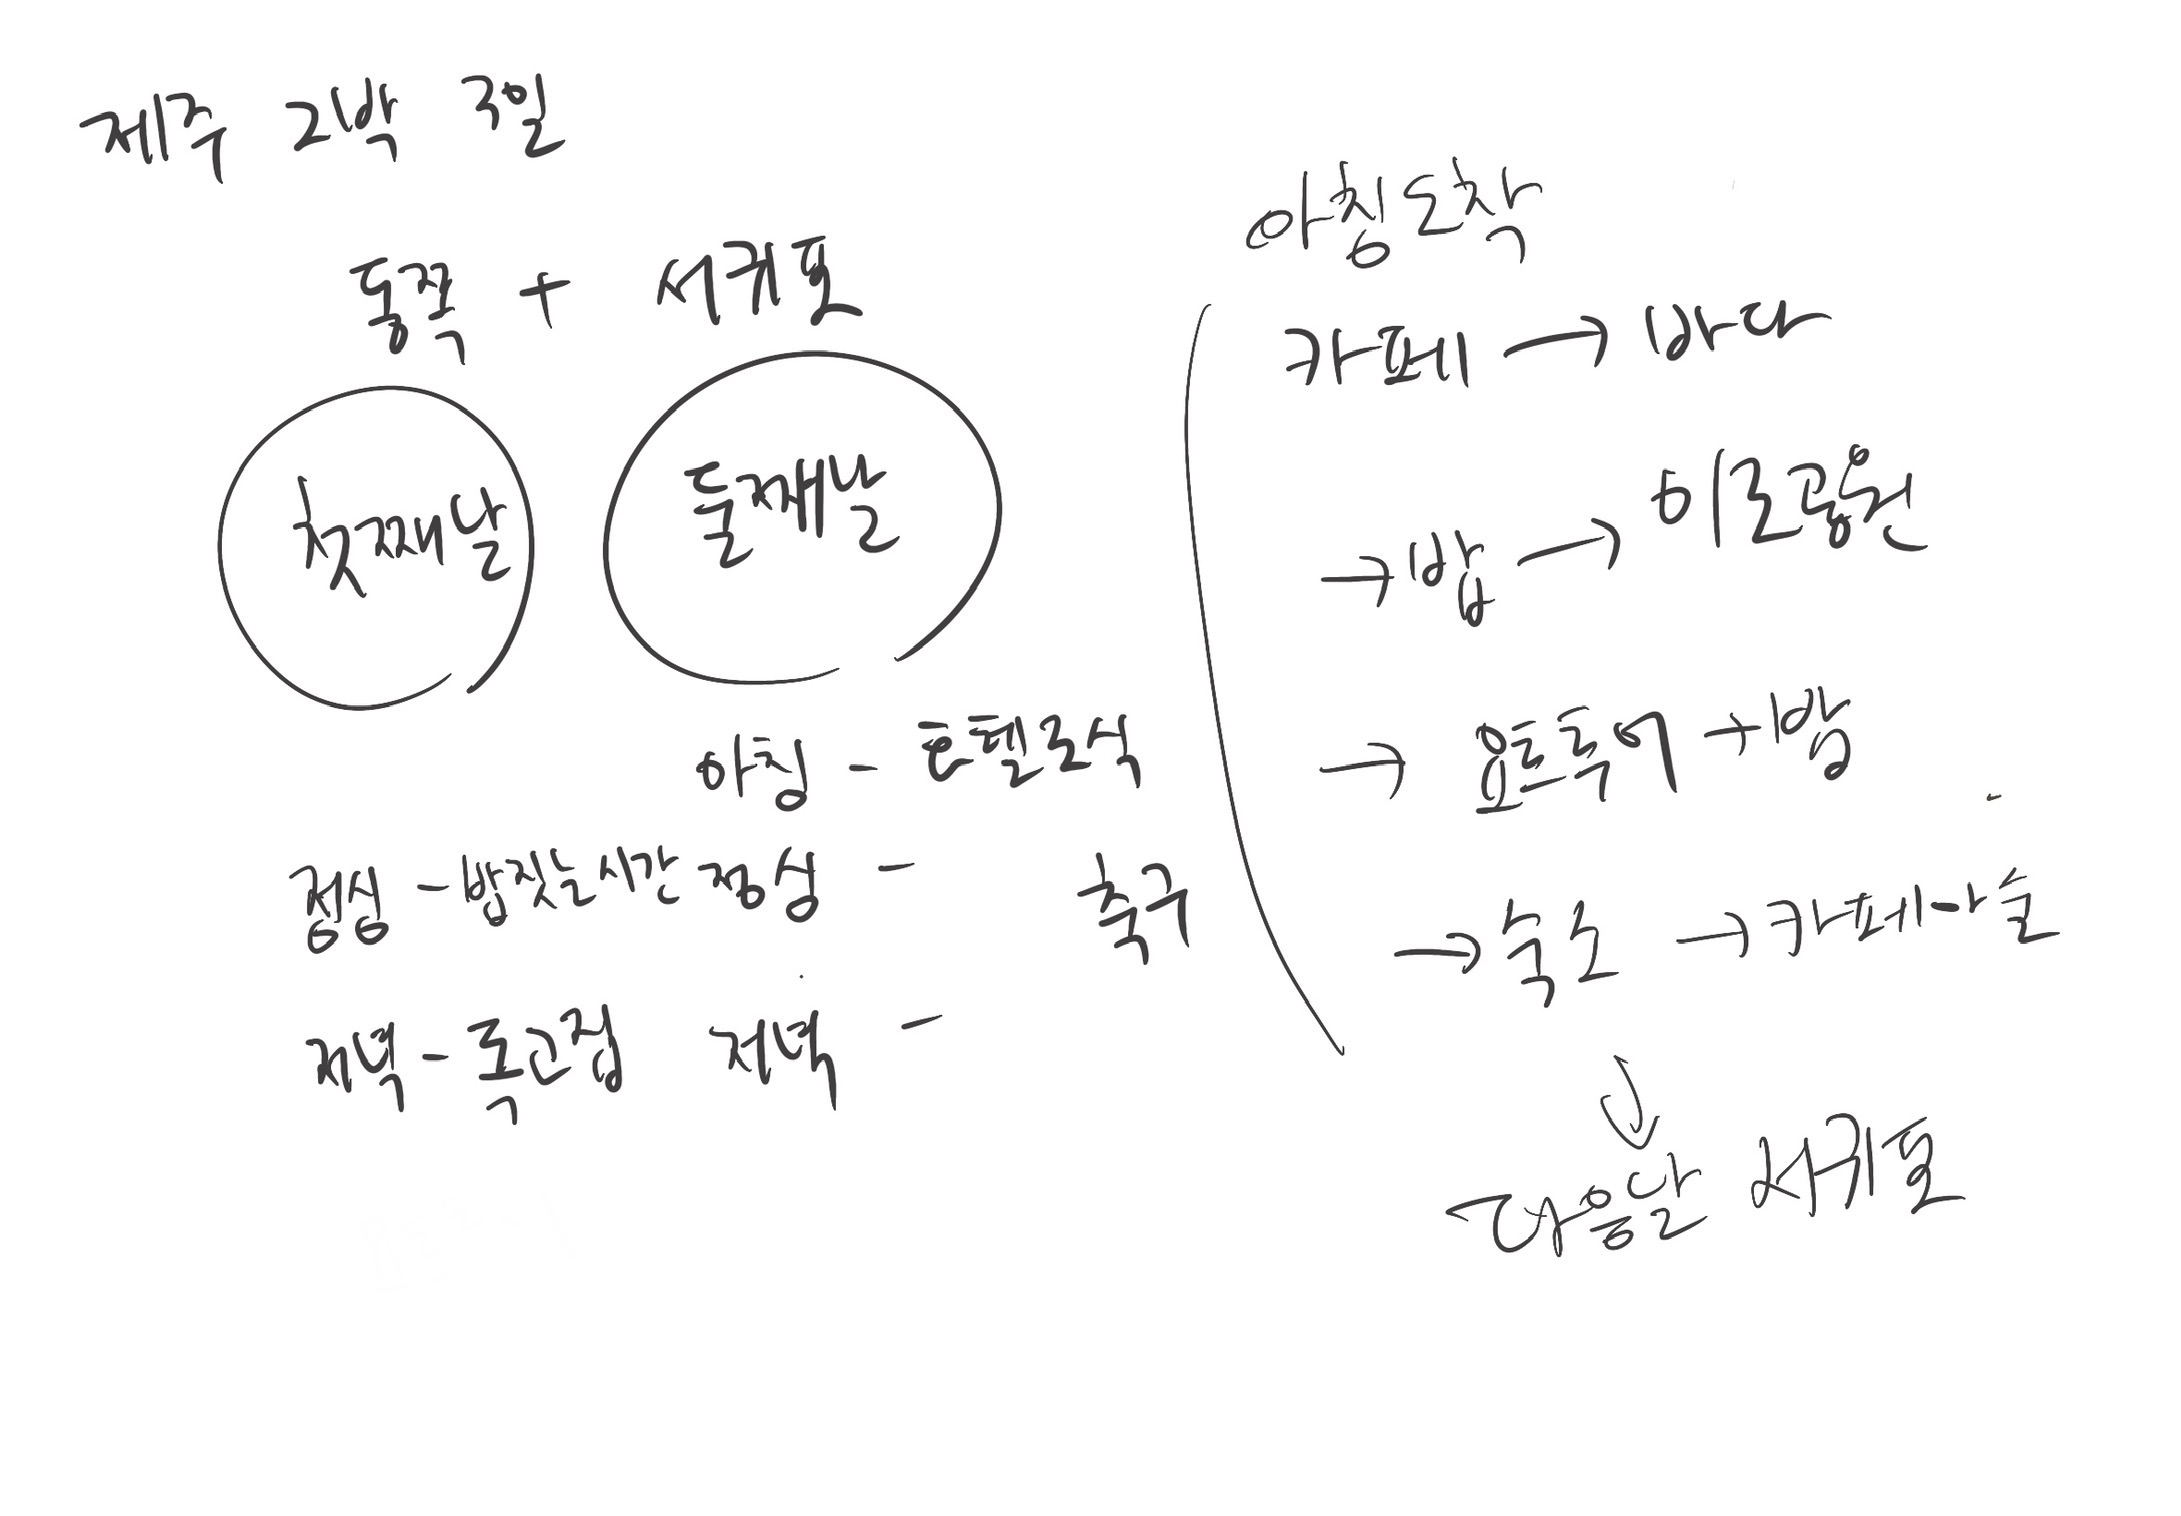 제주 2박 3일
동쪽 + 서귀포
첫째날 둘째날
아침 - 호텔조식
점심 - 밥짓는시간 점심 -
축구
저녁 - 톡고집 저녁 -
아침도착
카페 → 바다
→ 밥 → 미로공원
→ 요트투어 + 밥
→ 숙소 → 카페마술
다음날 서귀포